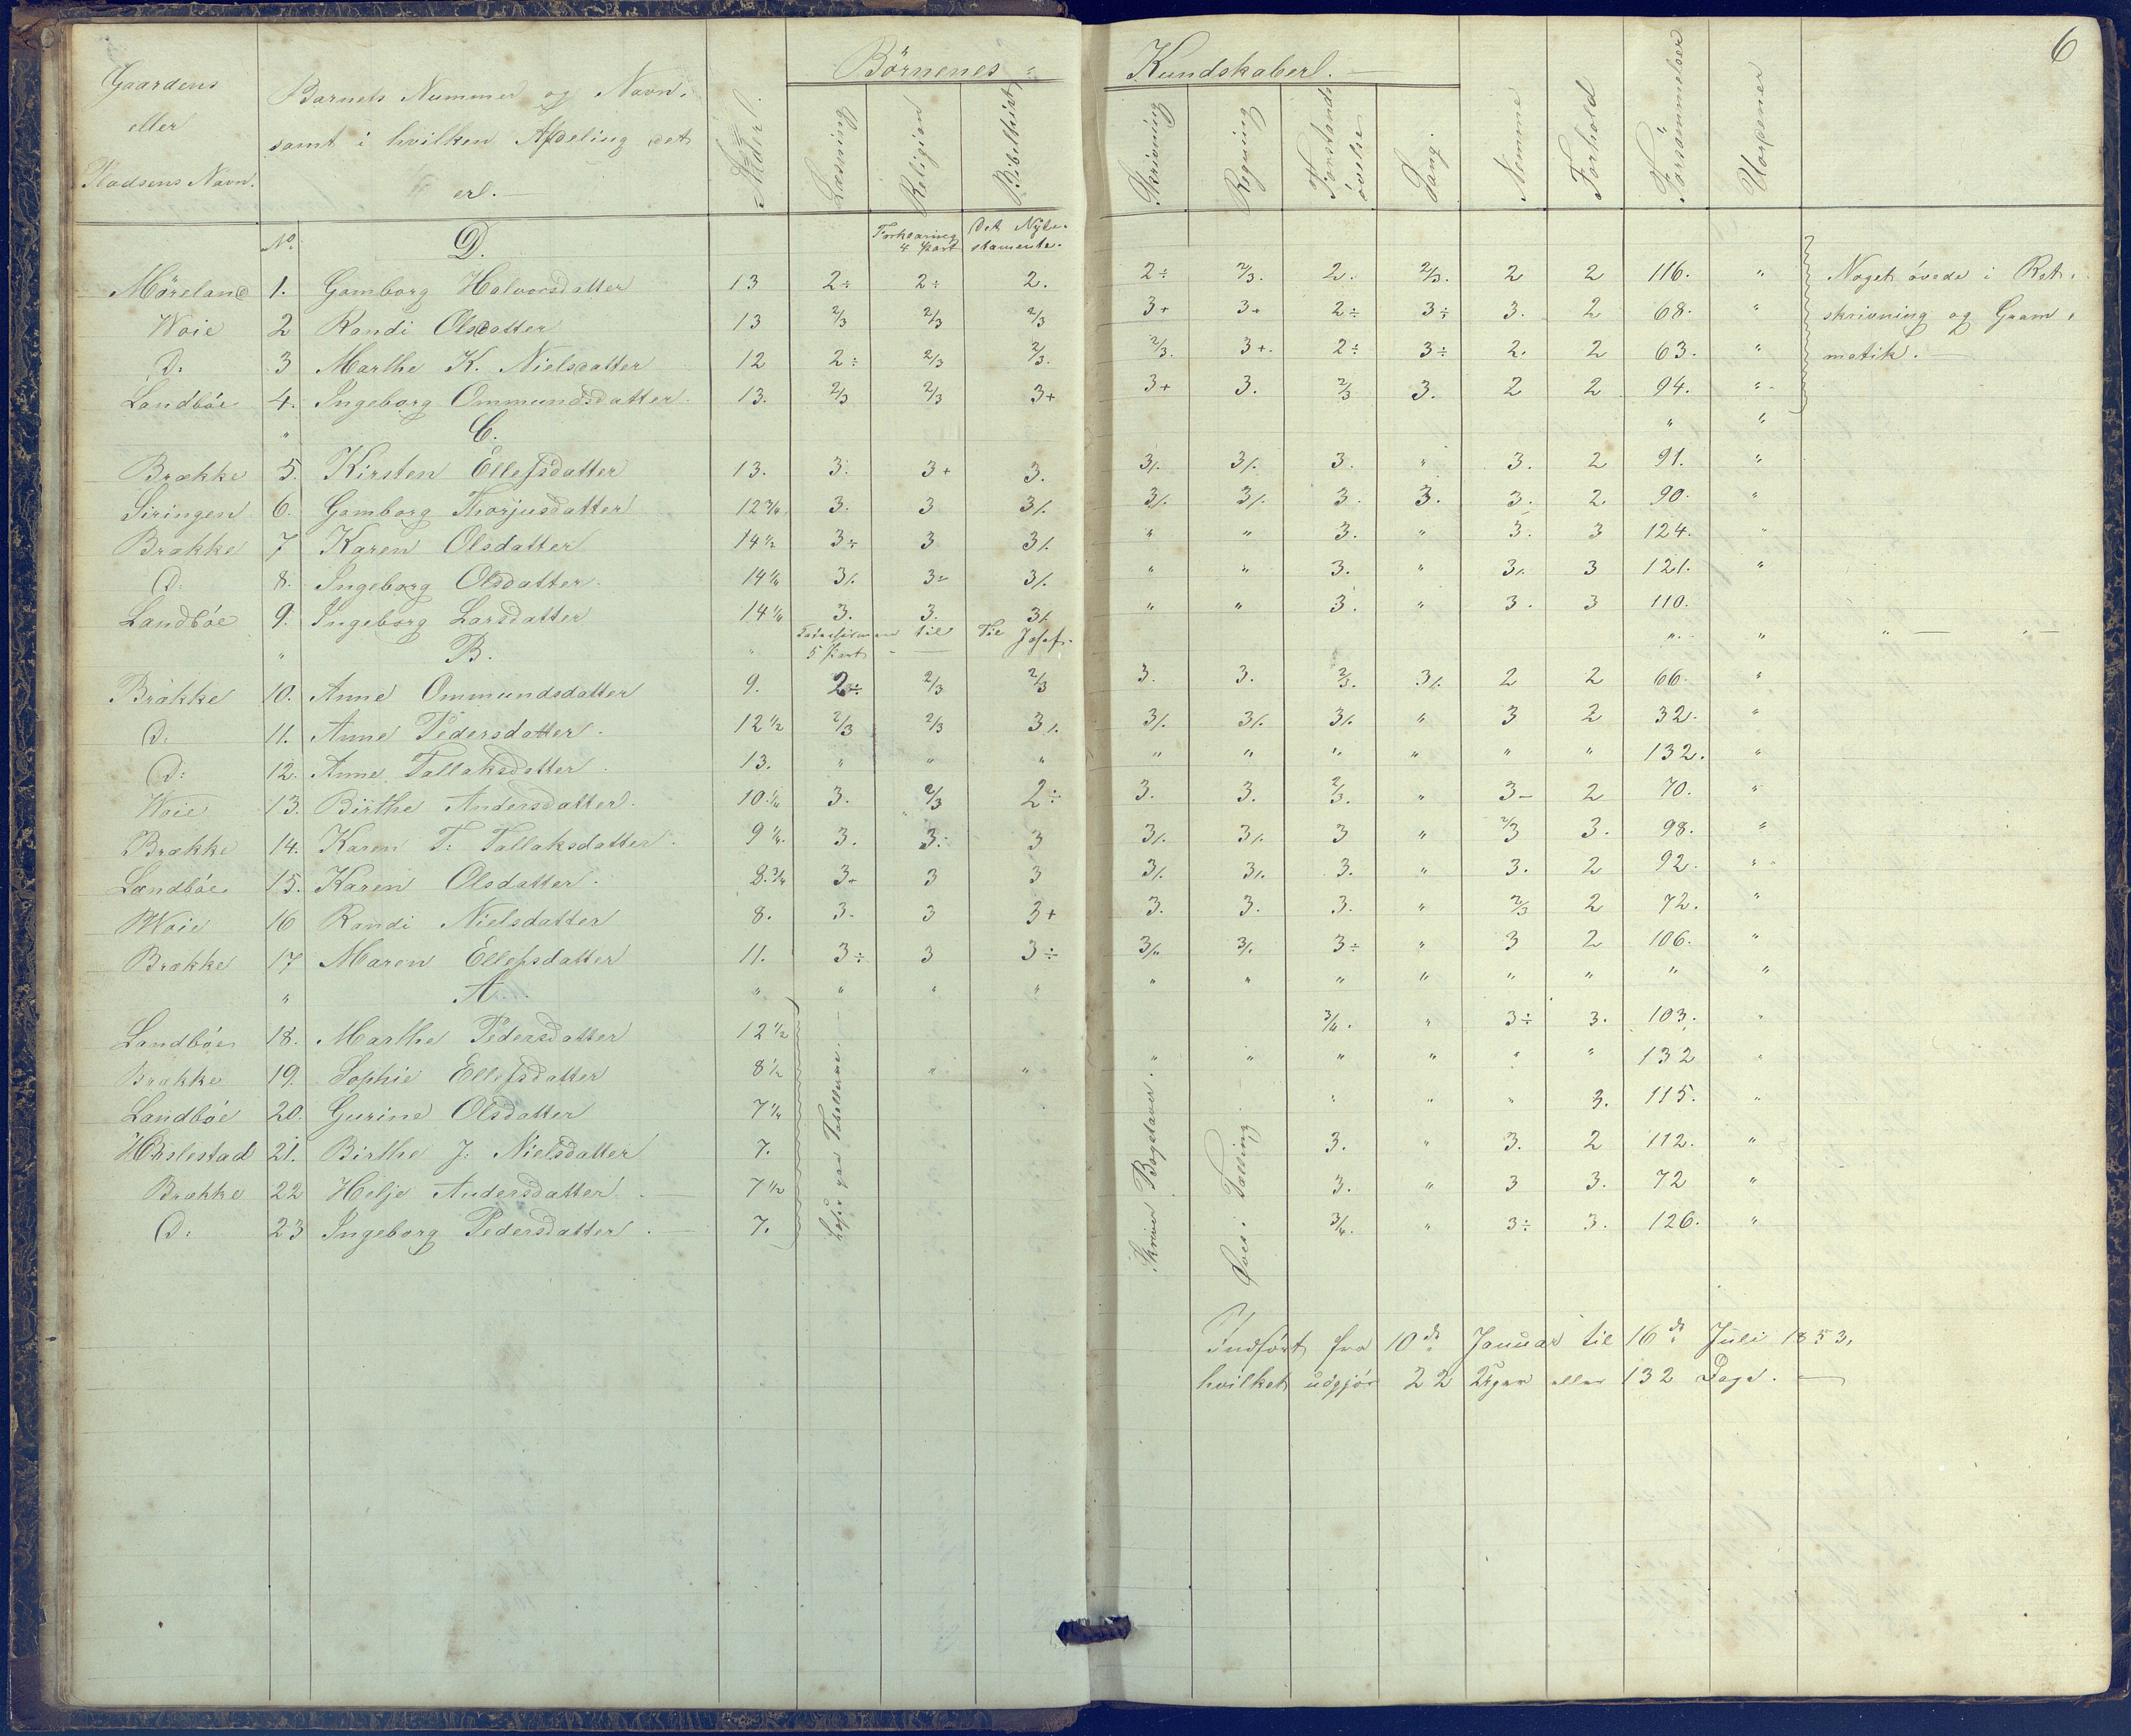 6
Börnenes Kundskaber.
Gaardens eller Pladsens Navn. | Barnets Nummer og Navn, samt i hvilken Afdeling det er. | Alder. | Læsning | Religion | Bibelhist. | Skrivning | Regning | Forstands övelse | Sang. | Nemme | Forhold | Forsömmelser | Uorpener
No. D. Forklaring 4 Part Det Nyte- stamente.
Möreland 1. Gomborg Halvorsdatter 13 2÷ 2÷ 2. 2÷ 2/3. 2. 2/3. 2 2 116. " Noget övede i Ret-
Woie 2 Randi Olsdatter 13 2/3 2/3 2/3 3+ 3+ 2÷ 3÷ 3. 2 68. " skrivning og Gram-
D: 3 Marthe K. Nielsdatter 12 2÷ 2/3 2/3. 2/3. 3+. 2÷ 3÷ 2. 2 63. " matik.
Landböe 4. Ingeborg Ommundsdatter 13. 2/3 2/3 3+ 3+ 3. 2/3 3. 2 2 94. "
" C. " "
Brække 5. Kirsten Ellefsdatter 13. 3. 3+ 3. 3/. 3/. 3. " 3. 2 91. "
Siringen 6. Gomborg Thorjusdatter 12 3/4 3. 3 3/. 3/. 3/. 3. 3. 3. 2 90. "
Brække 7 Karen Olsdatter 14 1/2 3÷ 3 3/. " " 3. " 3. 3 124. "
D: 8. Ingeborg Olsdatter 14 1/4 3/. 3÷ 3/. " " 3. " 3/. 3 121. "
Landböe 9. Ingeborg Larsdatter 14 1/4 3. 3. 3/. " " 3. " 3. 3 110.
" B. " 5 Part til Til Josef. " "
Brække 10. Anne Ommundsdatter 9. 2÷ 2/3 2/3 3. 3. 2/3. 3/. 2 2 66. "
D: 11. Anne Pedersdatter 12 1/2 2/3 2/3 3/. 3/. 3/. 3/. " 3 2 32. "
D: 12. Anne Tallaksdatter 13. " " " " " " " " " 132. "
Woie 13. Birthe Andersdatter 10 1/4 3. 2/3 2÷ 3. 3. 2/3. " 3- 2 70. "
Brække 14. Karen T: Tallaksdatter 9 1/4. 3. 3. 3 3/. 3/. 3 " 2/3 3. 98. "
Landböe 15. Karen Olsdatter 8 3/4 3+ 3 3 3/. 3/. 3. " 3. 2 92. "
Woie 16 Randi Nielsdatter 8. 3. 3 3+ 3. 3. 3. " 2/3 2 72. "
Brække 17 Maren Ellefsdatter 11. 3÷ 3 3÷ 3/. 3/. 3÷ " 3 2 106. "
" A. " " " " " " " " " " " "
Landböe 18. Marthe Pedersdatter 12 1/2 3/4. " 3÷ 3. 103. "
Brække 19. Sophie Ellefsdatter 8 1/2 " " " " " " " " 132 "
Landböe 20. Gurine Olsdatter 7 1/4 " " " 3. 115. "
Hörstestad 21. Birthe J: Nielsdatter 7. 3. " 3. 2 112. "
Brække 22 Helje Andersdatter 7 1/2 3. " 3 3. 72 "
D: 23 Ingeborg Pedersdatter 7. 3/4. " 3÷ 3. 126. "
Læse paa Tabellerne.
Skriver Bogstaver.
Öves i Tælling
Indfört fra 10de Januar til 16de Juli 1853,
hvilket udgjör 22 Uger eller 132 Dage.